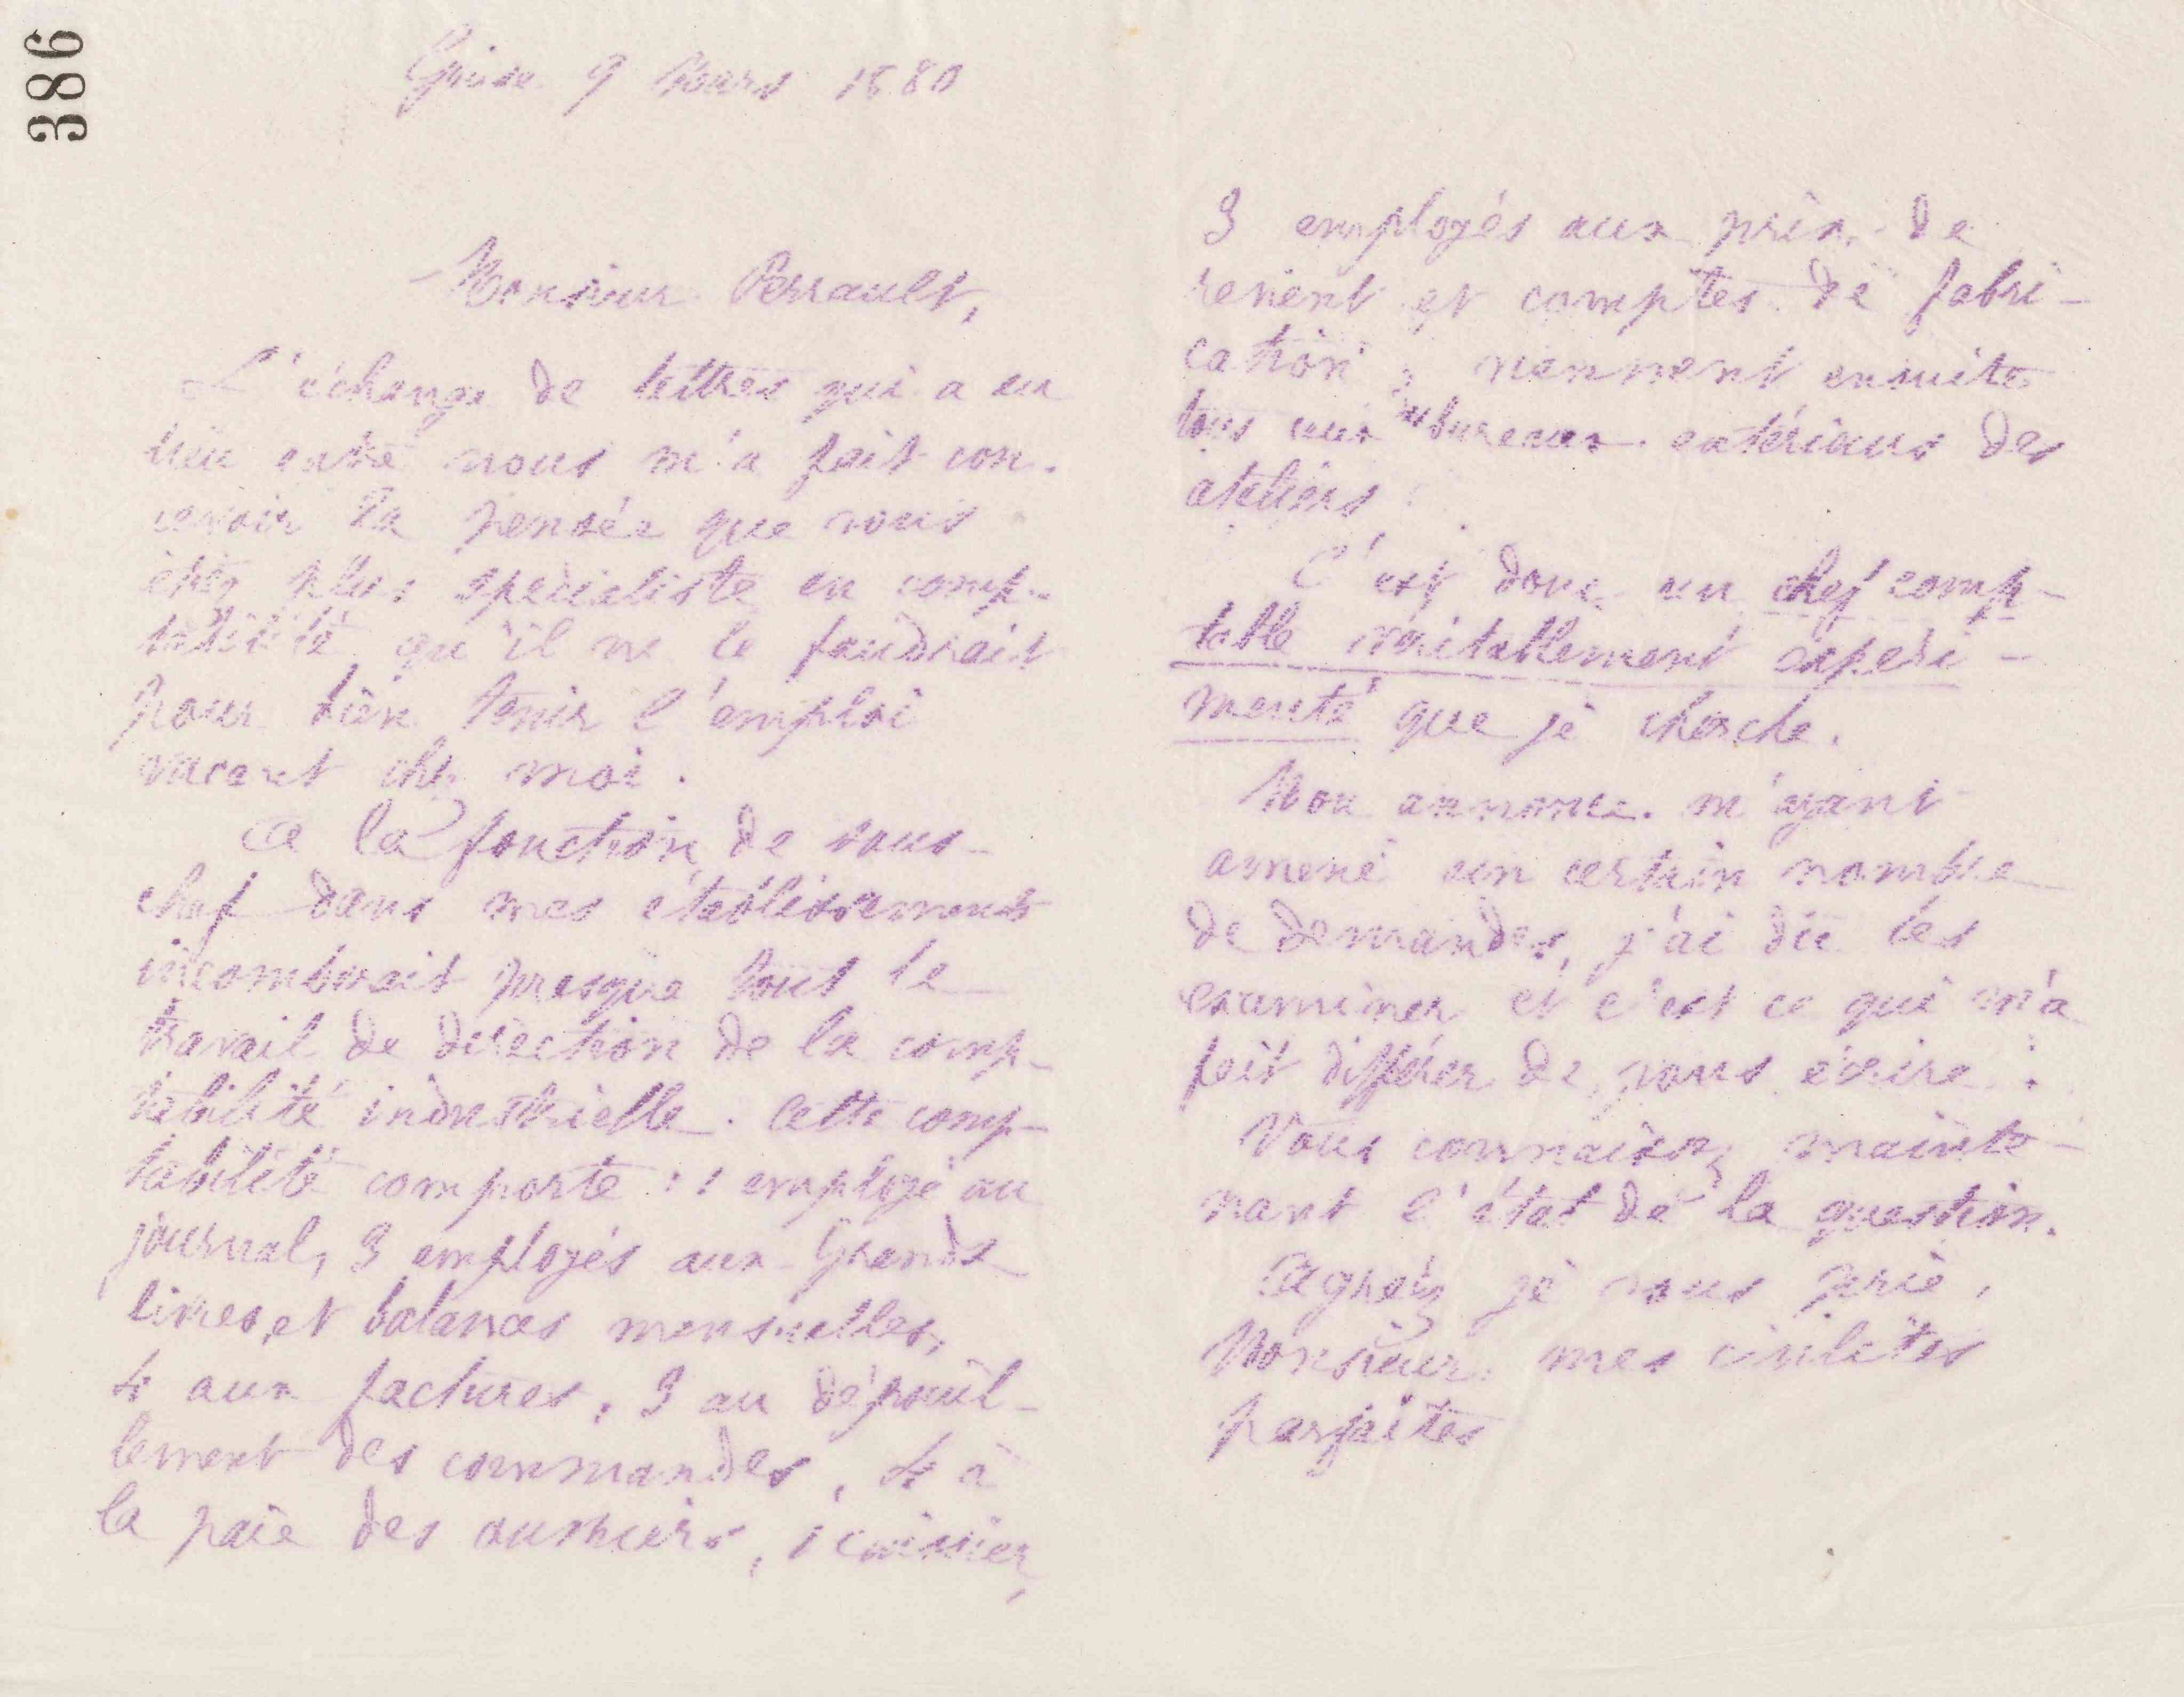 386
Guise 9 Mars 1880
Monsieur Perrault,
L'échange de lettres qui a eu
lieu entre nous m'a fait con-
cevoir la pensée que vous
étiez plus spécialiste en comp-
tabilité qu'il ne le faudrait
pour bien tenir l'emploi
vacant chez moi.
A la fonction de sous-
chef dans mes établissements
incomberait presque tout le
travail de direction de la comp-
tabilité industrielle. Cette comp-
tabilité comporte : 1 employé au
journal, 3 employés aux Grands
livres et balances mensuelles,
4 aux factures, 3 au dépouil-
lement des commandes, 4 à
la paie des ouvriers, 1 caissier,
3 employés aux prix de
revient et comptes de fabri-
cation ; viennent ensuite
tous ceux des bureaux extérieurs des
ateliers.
C'est donc un chef comp-
table véritablement expéri-
menté que je cherche.
Mon annonce m'ayant
amené un certain nombre
de demandes, j'ai dû les
examiner et c'est ce qui m'a
fait différer de vous écrire.
Vous connaissez mainte-
nant l'état de la question.
Agréez je vous prie,
Monsieur, mes civilités
parfaites